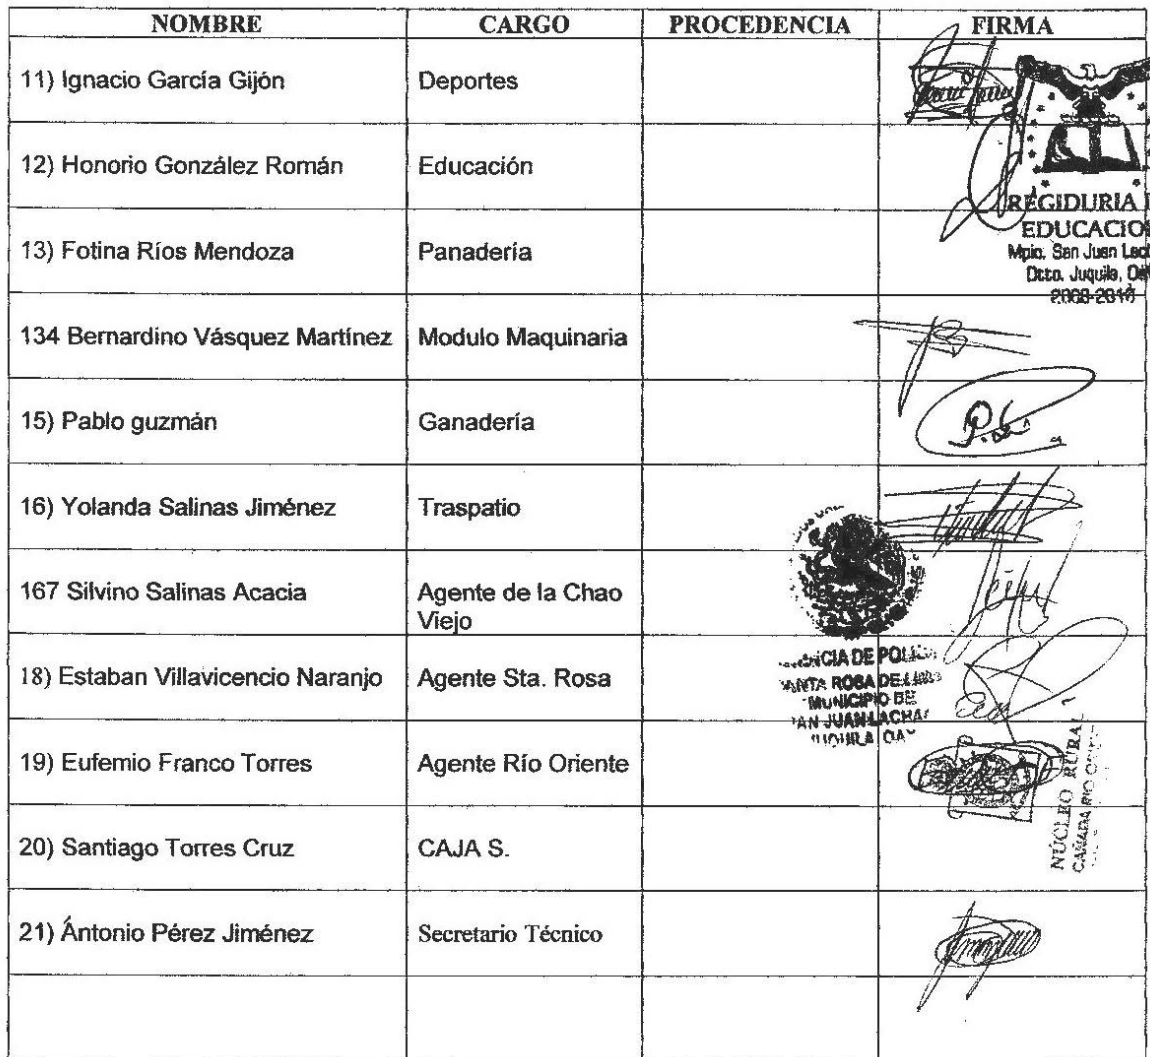 NOMBRE CARGO PROCEDENCIA FIRMA
11) Ignacio García Gijón Deportes
12) Honorio González Román Educación
REGIDURIA
EDUCACIO
13) Fotina Ríos Mendoza Panadería
Mpio. San Juan
Dtto. Juquila,
2008-2010
134 Bernardino Vásquez Martínez Modulo Maquinaria
15) Pablo guzmán Ganadería
16) Yolanda Salinas Jiménez Traspatio
167 Silvino Salinas Acacia Agente de la Chao
Viejo
CIA DE POLI
18) Estaban Villavicencio Naranjo Agente Sta. Rosa
ROSA DE
MUNICIPIO DE
AN JUAN LACHA
19) Eufemio Franco Torres Agente Río Oriente
NÚCLEO RURAL
CAÑADA RIO
20) Santiago Torres Cruz CAJA S.
21) Ántonio Pérez Jiménez Secretario Técnico